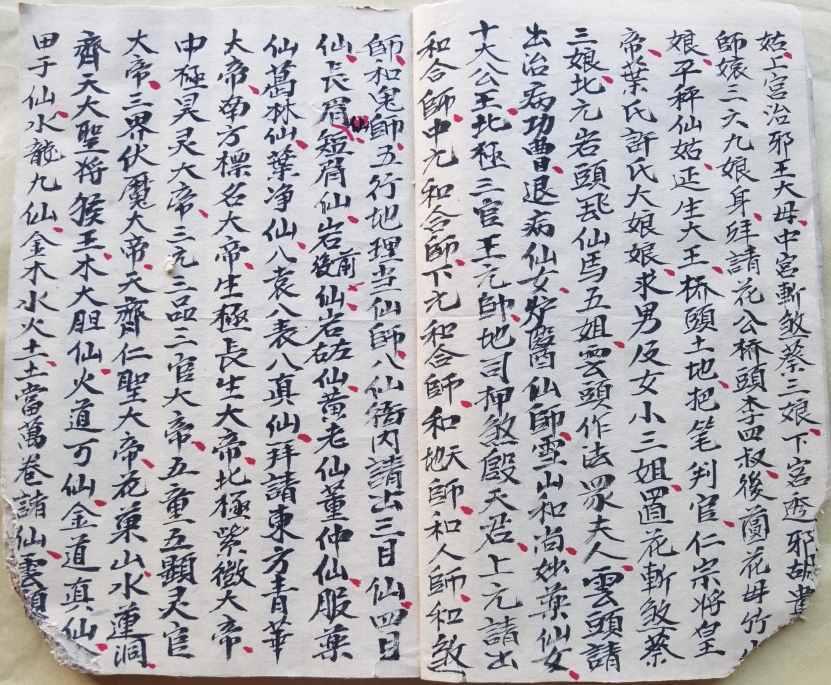 姑上宮治邪王大母中宮斬煞蔡三娘下宮透邪胡
師娘三六九娘身拜請花公桥頭李四叔後蘭花母竹
娘平秤仙姑延生大王桥頭土地把笔判官仁宗将皇
帝葉氏許氏大娘娘求男反女小三姐置花斬煞蔡
三娘北元岩頭飛仙馬五姐雲頭作法眾夫人雲頭請
出治病功曹退病仙女炉醫仙師雪山和尚妙藥仙女
十大公王北極三官王元帥地司押煞殷天君上元請出
和合師中元和合師下元和合師和天地師和人師和煞
師和鬼師五行地理当仙師八仙衙内請出三目仙四目
仙長眉短眉仙岩前後仙岩左右仙黄老仙董仲仙服藥
仙萬林仙葉净仙八袁八表八真仙拜請東方青華
大帝南方標名大帝生極長生大帝北極紫微大帝
中極昊灵大帝三元三品三官大帝五童五顯灵官
大帝三界伏魔大帝天齊仁聖大帝花菓山水蓮洞
齊天大聖将猴王木大胆仙火道可仙金道真仙
甲子仙水龍九仙金木水火土土當萬卷諸仙雲頭